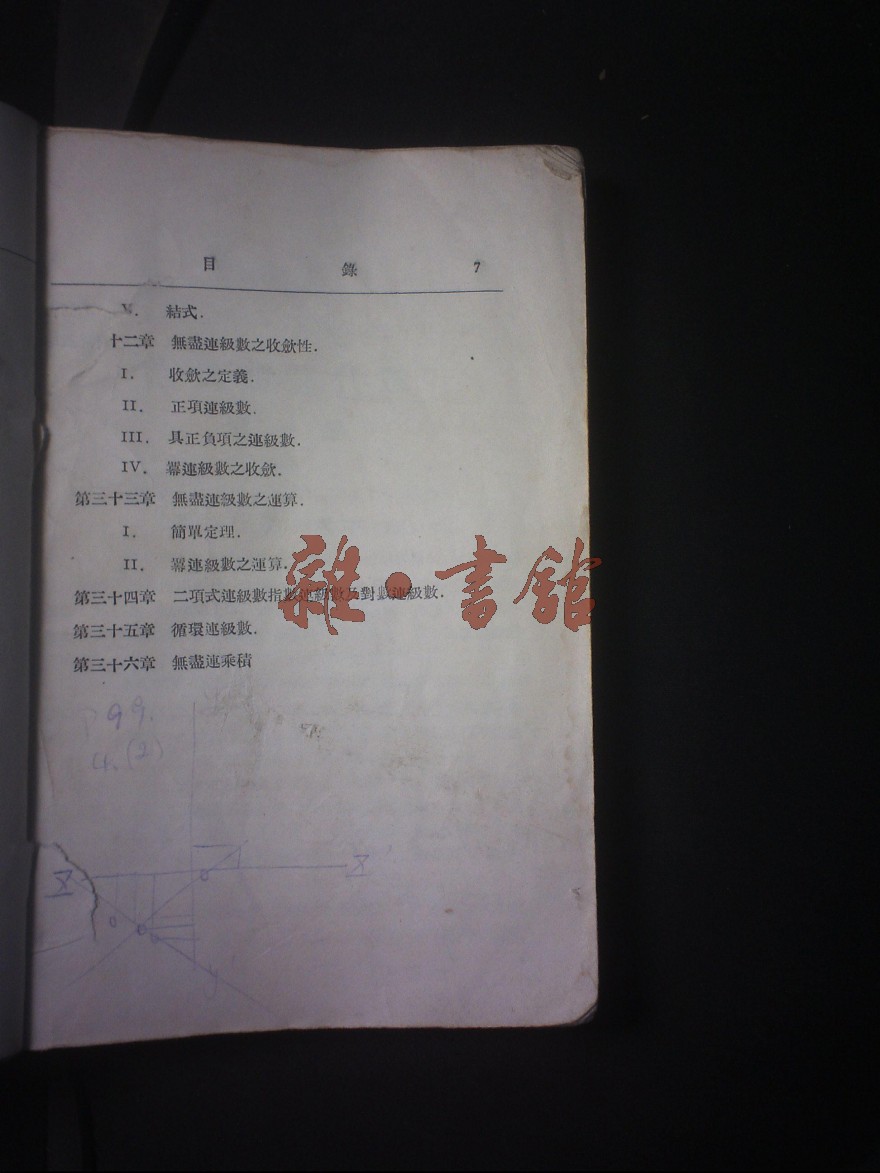 目錄 7
V. 結式.
十二章 無盡連級數之收歛性.
I. 收歛之定義.
II. 正項連級數.
III. 具正負項之連級數.
IV. 羃連級數之收歛.
第三十三章 無盡連級數之運算.
I. 簡單定理.
II. 羃連級數之運算.
第三十四章 二項式連級數指數連級數及對數連級數.
雜·書館
第三十五章 循環連級數.
第三十六章 無盡連乘積
99.
4.(2)
X X
y